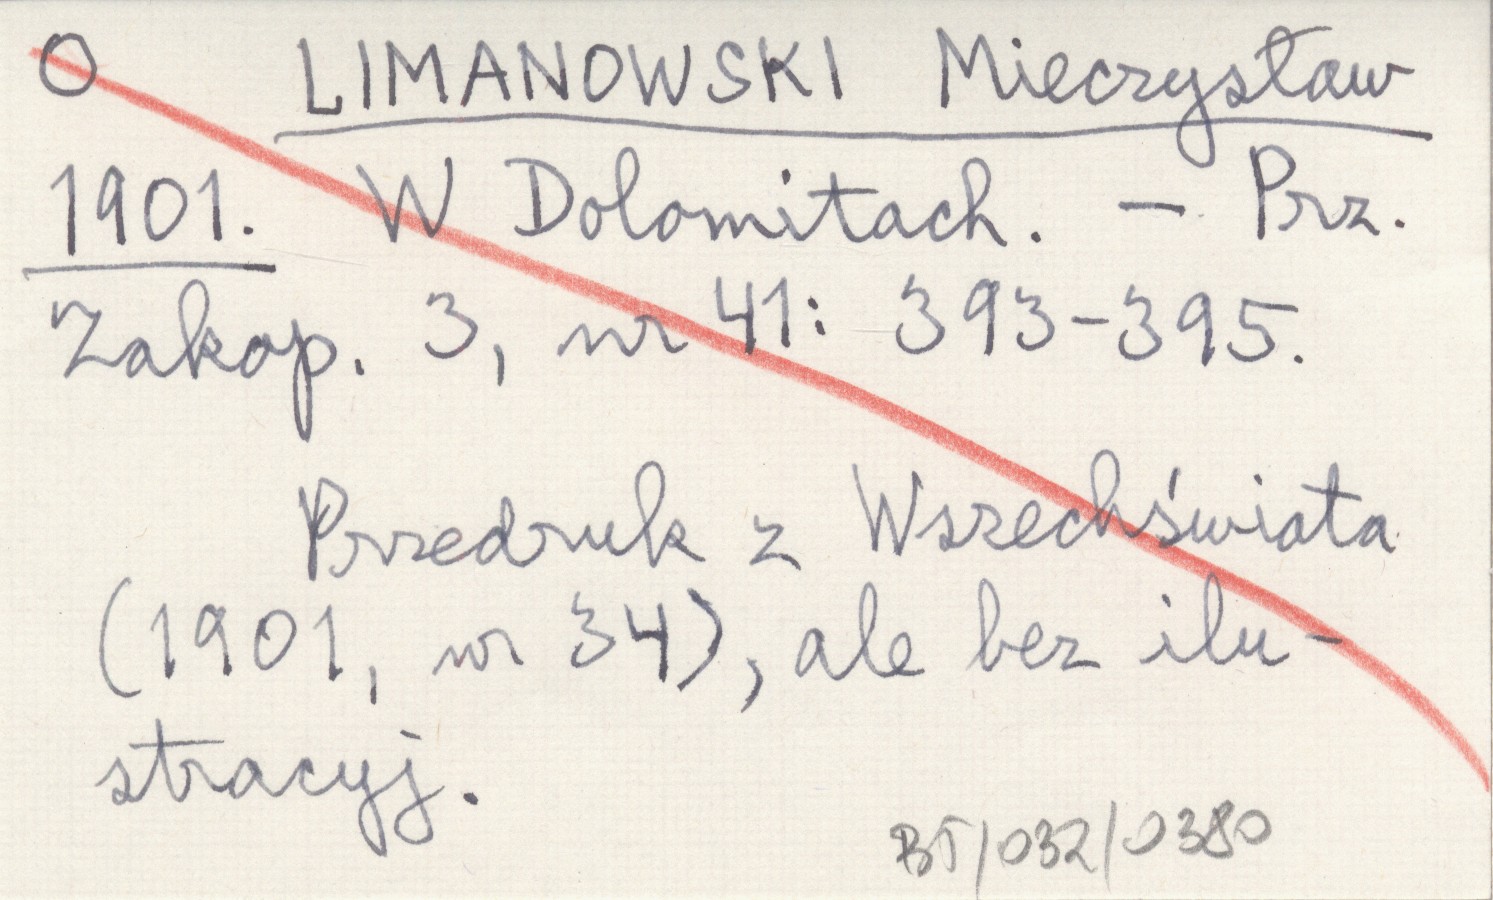 O LIMANOWSKI Mieczysław
1901. W Dolomitach. – Prz.
Zakop. 3, nr 41: 393-395.
Przedruk z Wszechświata
(1901, nr 34), ale bez ilu-
stracyj.
BT/032/0380